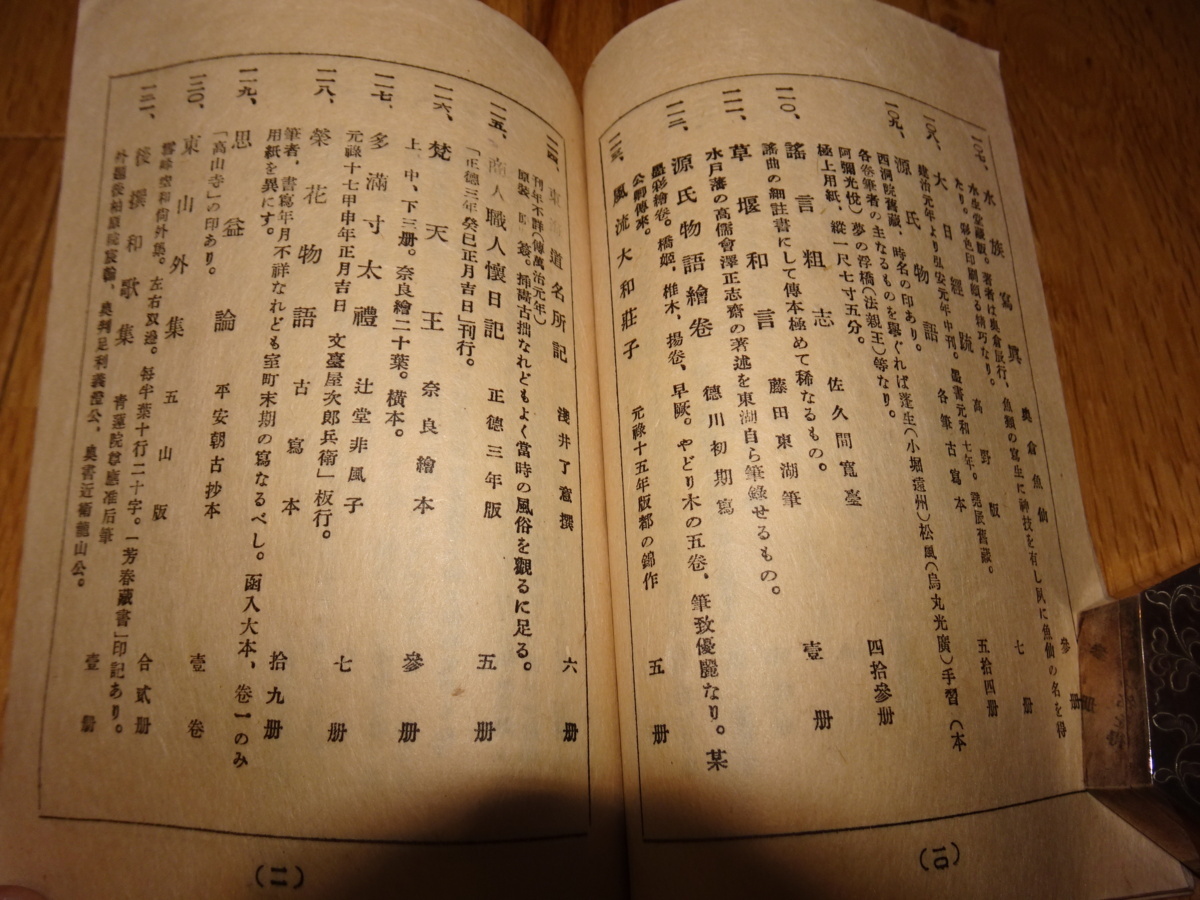 一〇七、水族寫眞 奥倉魚仙 參册
水生堂藏版。著者は奥倉辰行、魚類の寫生に神技を有し夙に魚仙の名を得
たり。彩色印刷頗る精巧なり。
一〇八、大日經疏 高野版 七册
建治元年より弘安元年中刊。墨書元和七年。舊藏。
一〇九、源氏物語 各筆古寫本 五拾四册
西洞院舊藏、時名の印あり。
各卷筆者の主なるものを擧ぐれば蓬生(小堀遠州)松風(烏丸光廣)手習(本
阿彌光悅)夢の浮橋(法親王)等なり。
極上用紙、縱一尺七寸五分。
一一〇、謠言粗志 佐久間寬臺 四拾參册
謠曲の細註書にして傳本極めて稀なるもの。
一一一、草堰和言 藤田東湖筆 壹册
水戸藩の高儒會澤正志齋の著述を東湖自ら筆錄せるもの。
一一二、源氏物語繪卷 德川初期寫
墨彩繪卷。橋姬、椎木、揚卷、早厥。やどり木の五卷、筆致優麗なり。某
公卿傳來。
一一三、風流大和莊子 元祿十五年版都の錦作 五册
(10)
一二四、東海道名所記 淺井了意撰 六册
刊年不詳(傳萬治元年)
原裝、簽。揷畵古拙なれどもよく當時の風俗を觀るに足る。
一二五、商人職人懷日記 正德三年版 五册
「正德三年癸巳正月吉日」刊行。
一二六、梵天王 奈良繪本 參册
上、中、下三册。奈良繪二十葉。橫本。
一二七、多滿寸太禮 辻堂非風子 七册
元祿十七甲申年正月吉日 文臺屋次郎兵衛」板行。
一二八、榮花物語 古寫本 拾九册
筆者、書寫年月不祥なれども室町末期の寫なるべし。函入大本、卷一のみ
用紙を異にす。
一二九、思益論 平安朝古抄本 壹卷
「高山寺」の印あり。
一三〇、東山外集 五山版 合貳册
雪峰空和尙外集。左右双邊。每半葉十行二十字。「芳春藏書」印記あり。
一三一、後撰和歌集 靑蓮院尊應准后筆 壹册
外題後柏原院宸翰、奥判足利義澄公、奥書近衞龍山公。
(一一)